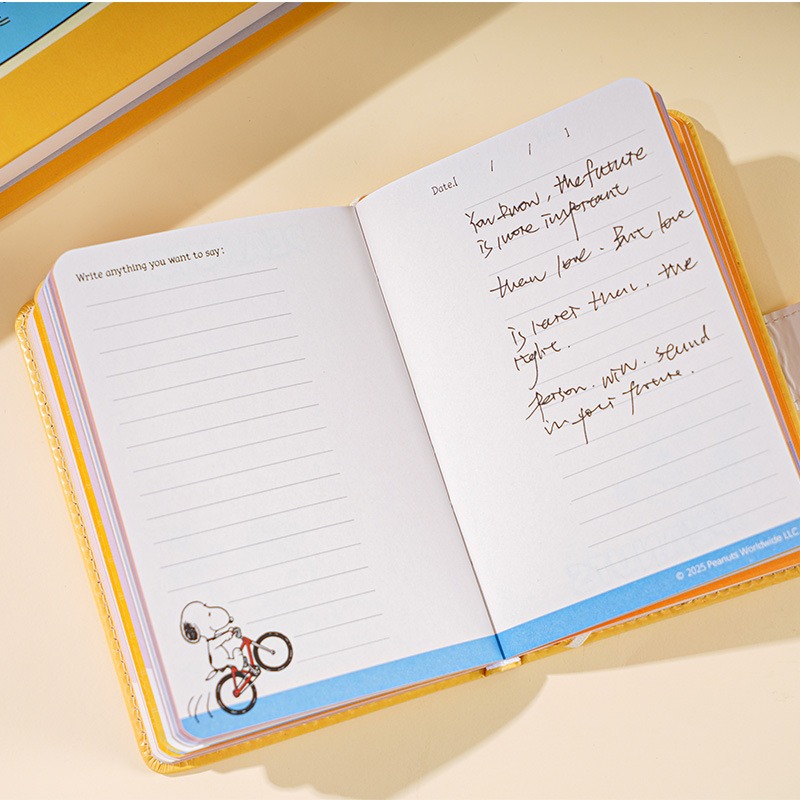 Write anything you want to say:
Date. / / /
You know, the future
is more important
than love. But love
is rarer than. the
right.
person. win. sound
in your future.
© 2025 Peanuts Worldwide LLC